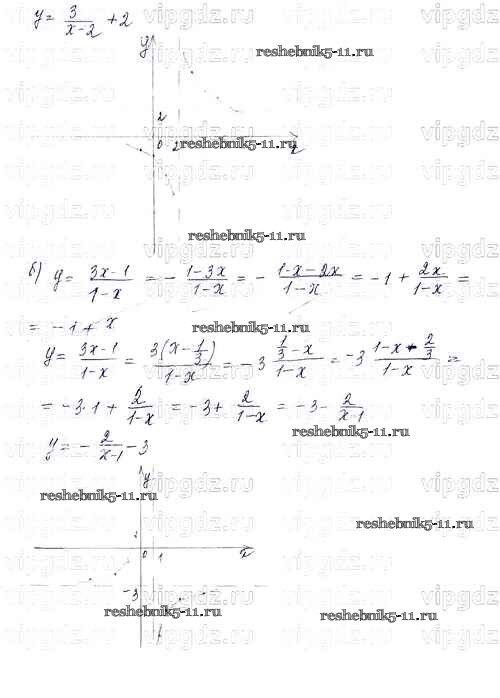 y = 3/(x-2) + 2
y
reshebnik5-11.ru
2
0 2 x
reshebnik5-11.ru
reshebnik5-11.ru
б) y = (3x-1)/(1-x) = - (1-3x)/(1-x) = - (1-x-2x)/(1-x) = -1 + 2x/(1-x) =
= -1 + x
reshebnik5-11.ru
y = (3x-1)/(1-x) = 3(x - 1/3)/(1-x) = -3 (1/3 - x)/(1-x) = -3 (1-x - 2/3)/(1-x) =
= -3·1 + 2/(1-x) = -3 + 2/(1-x) = -3 - 2/(x-1)
reshebnik5-11.ru
y = - 2/(x-1) - 3
y
reshebnik5-11.ru
reshebnik5-11.ru
0 1 x
-3
reshebnik5-11.ru
reshebnik5-11.ru
vipgdz.ru